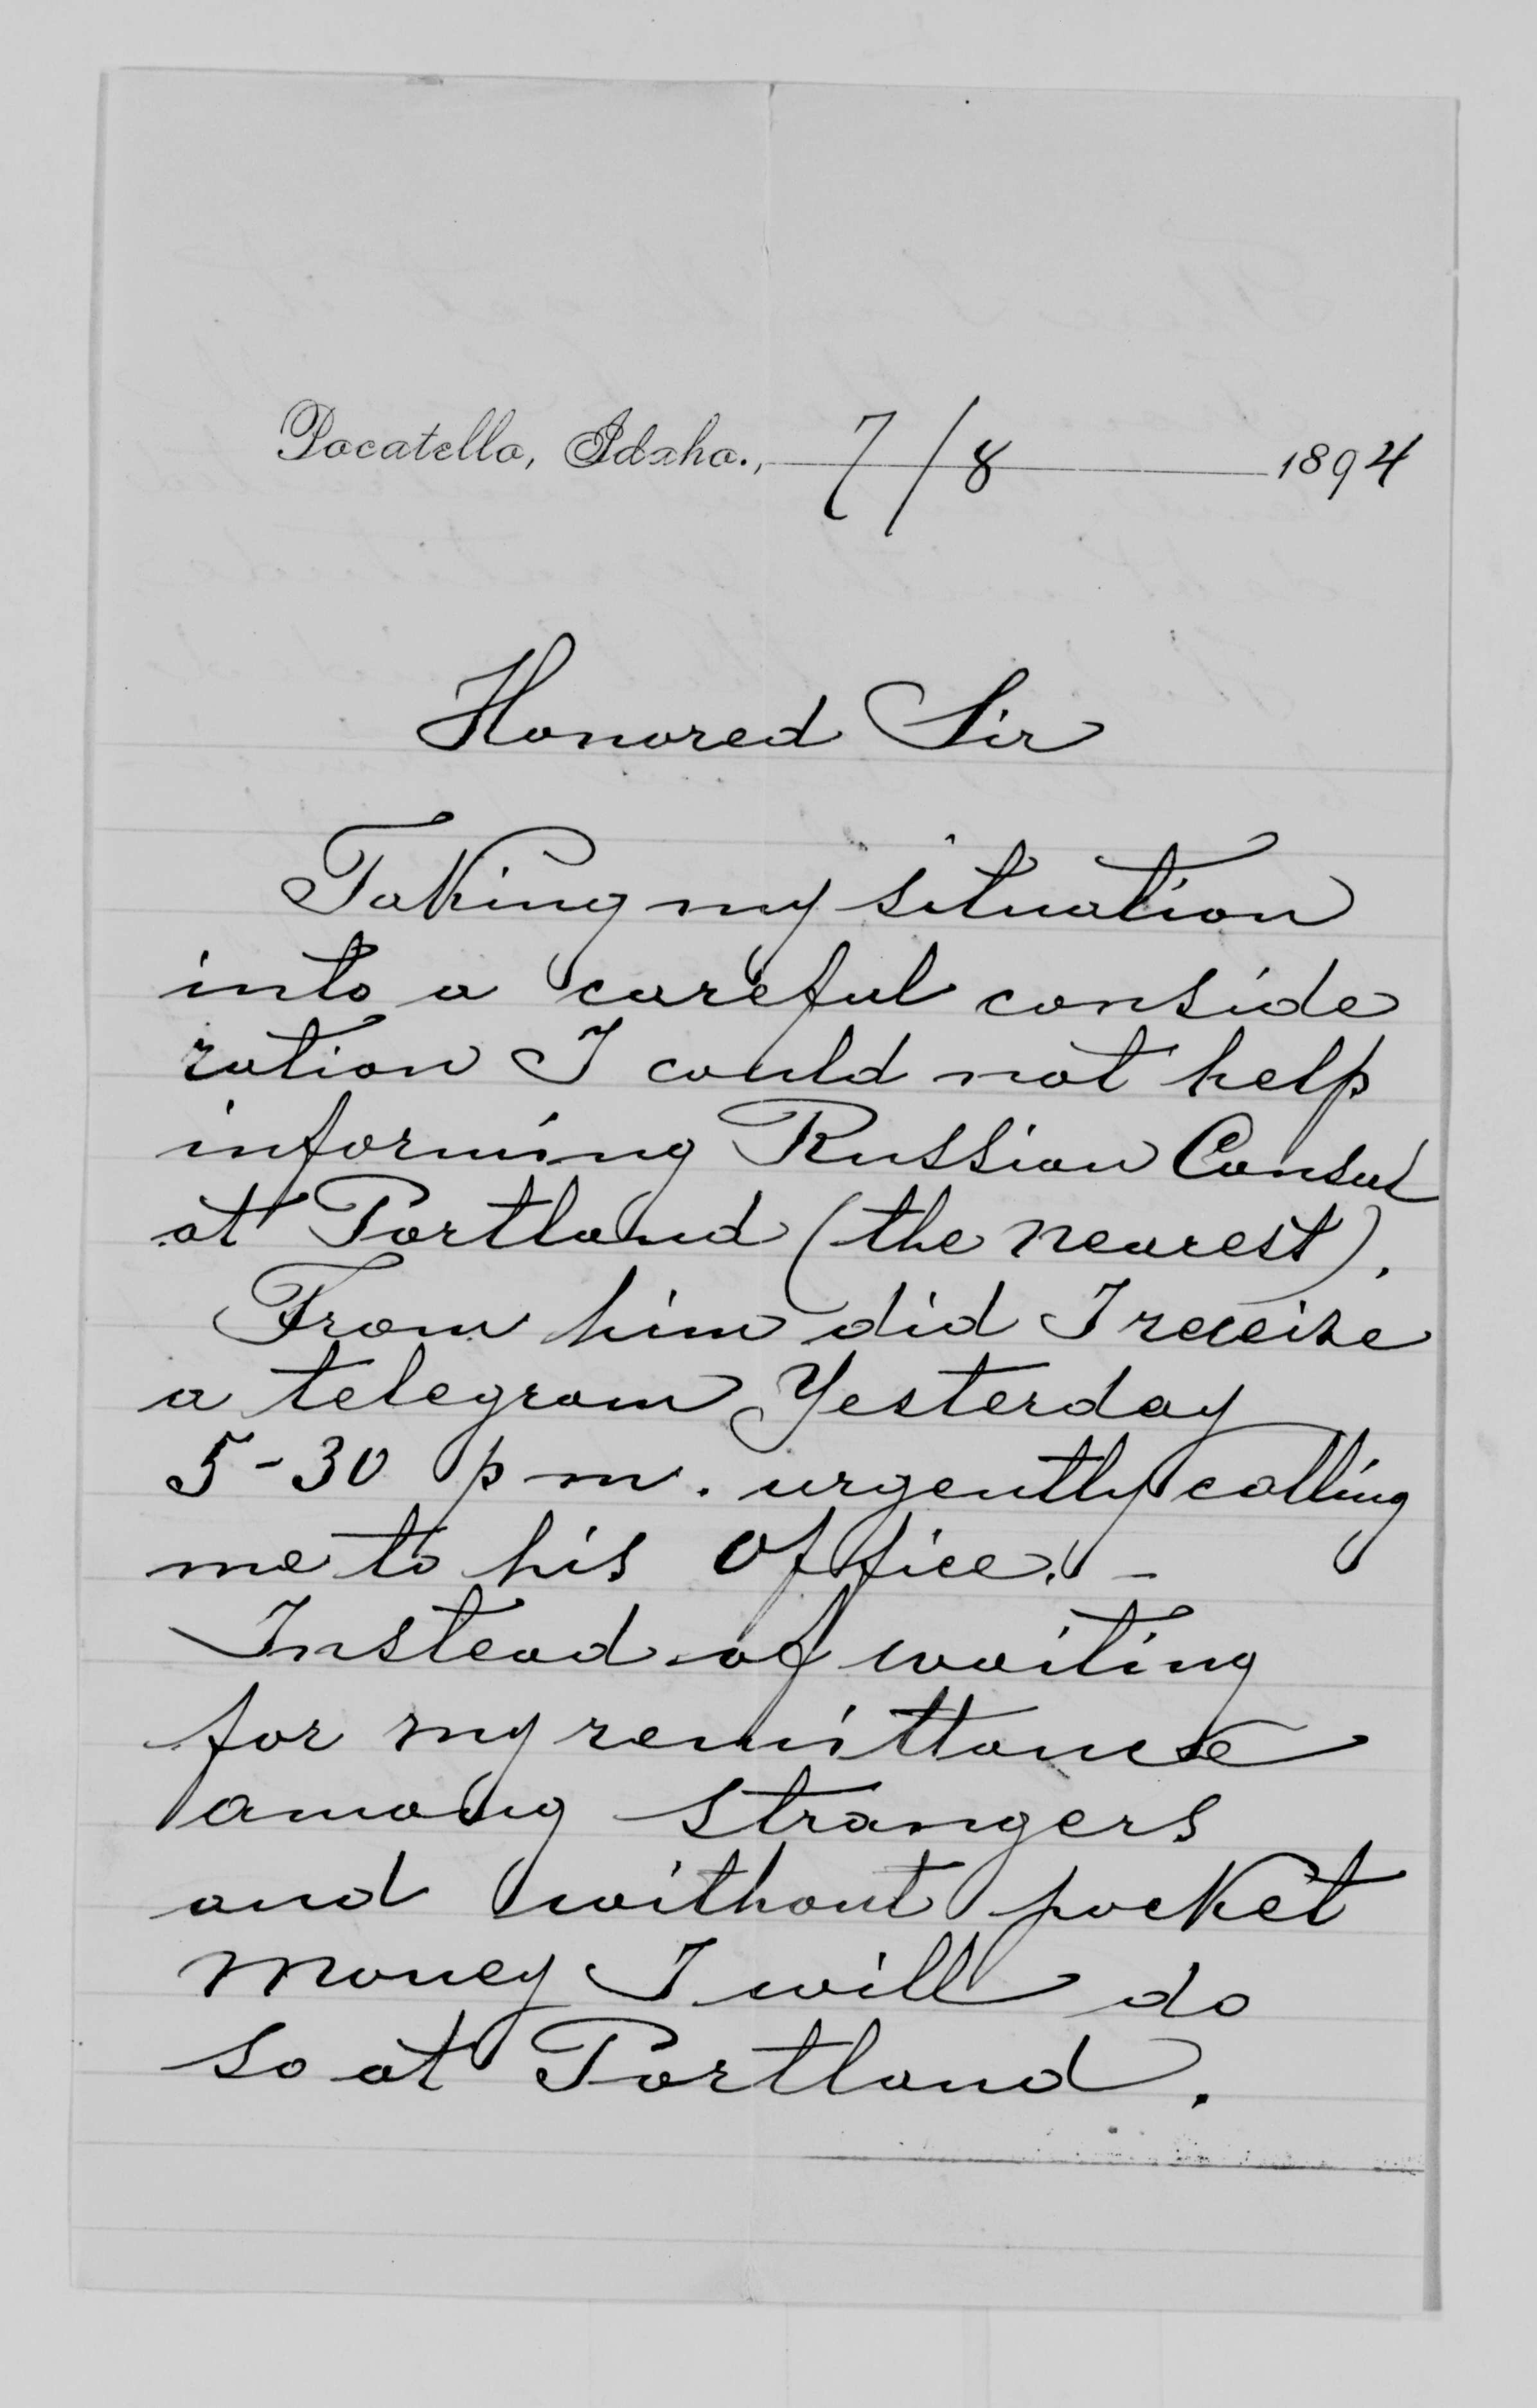 Pocatello, Idaho., 7/8 1894
Honored Sir
Taking my situation
into a careful conside
ration I could not help
informing Russian Consul
at Portland (the nearest).
From him did I receive
a telegram Yesterday
5-30 p m. urgently calling
me to his Office. -
Instead of waiting
for my remittance
among strangers
and without pocket
money I will do
so at Portland.